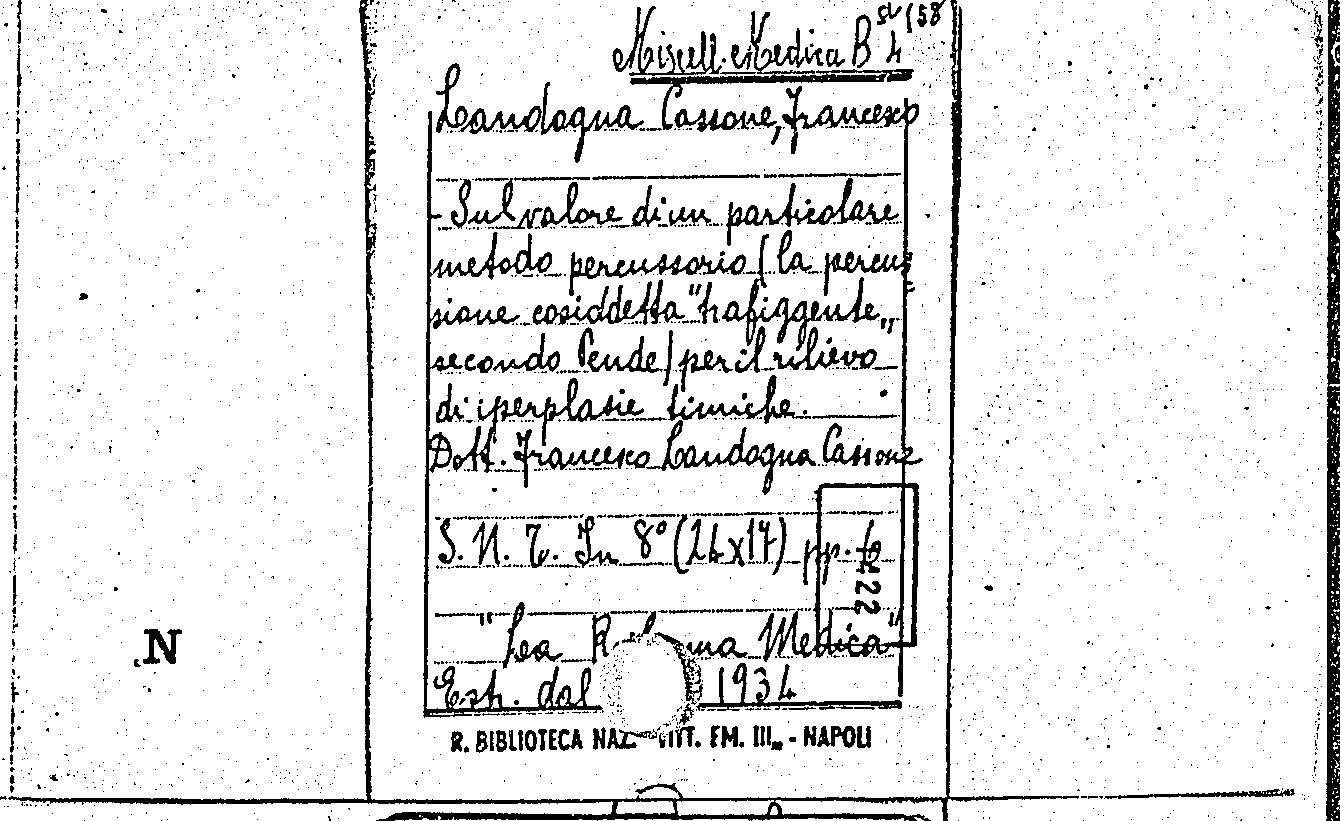 Miscell. Medica B 4 st/58
Landogna Cassone, Francesco
- Sul valore di un particolare
metodo percussorio (la percus
sione cosiddetta "trafiggente"
secondo Pende) per il rilievo
di iperplasie timiche.
Dott. Francesco Landogna Cassone
S. N. T. In 8° (24x17) pp. 10
422
"La R ma Medica"
Estr. dal 1934
R. BIBLIOTECA NAZ. VITT. EM. III„ - NAPOLI
N